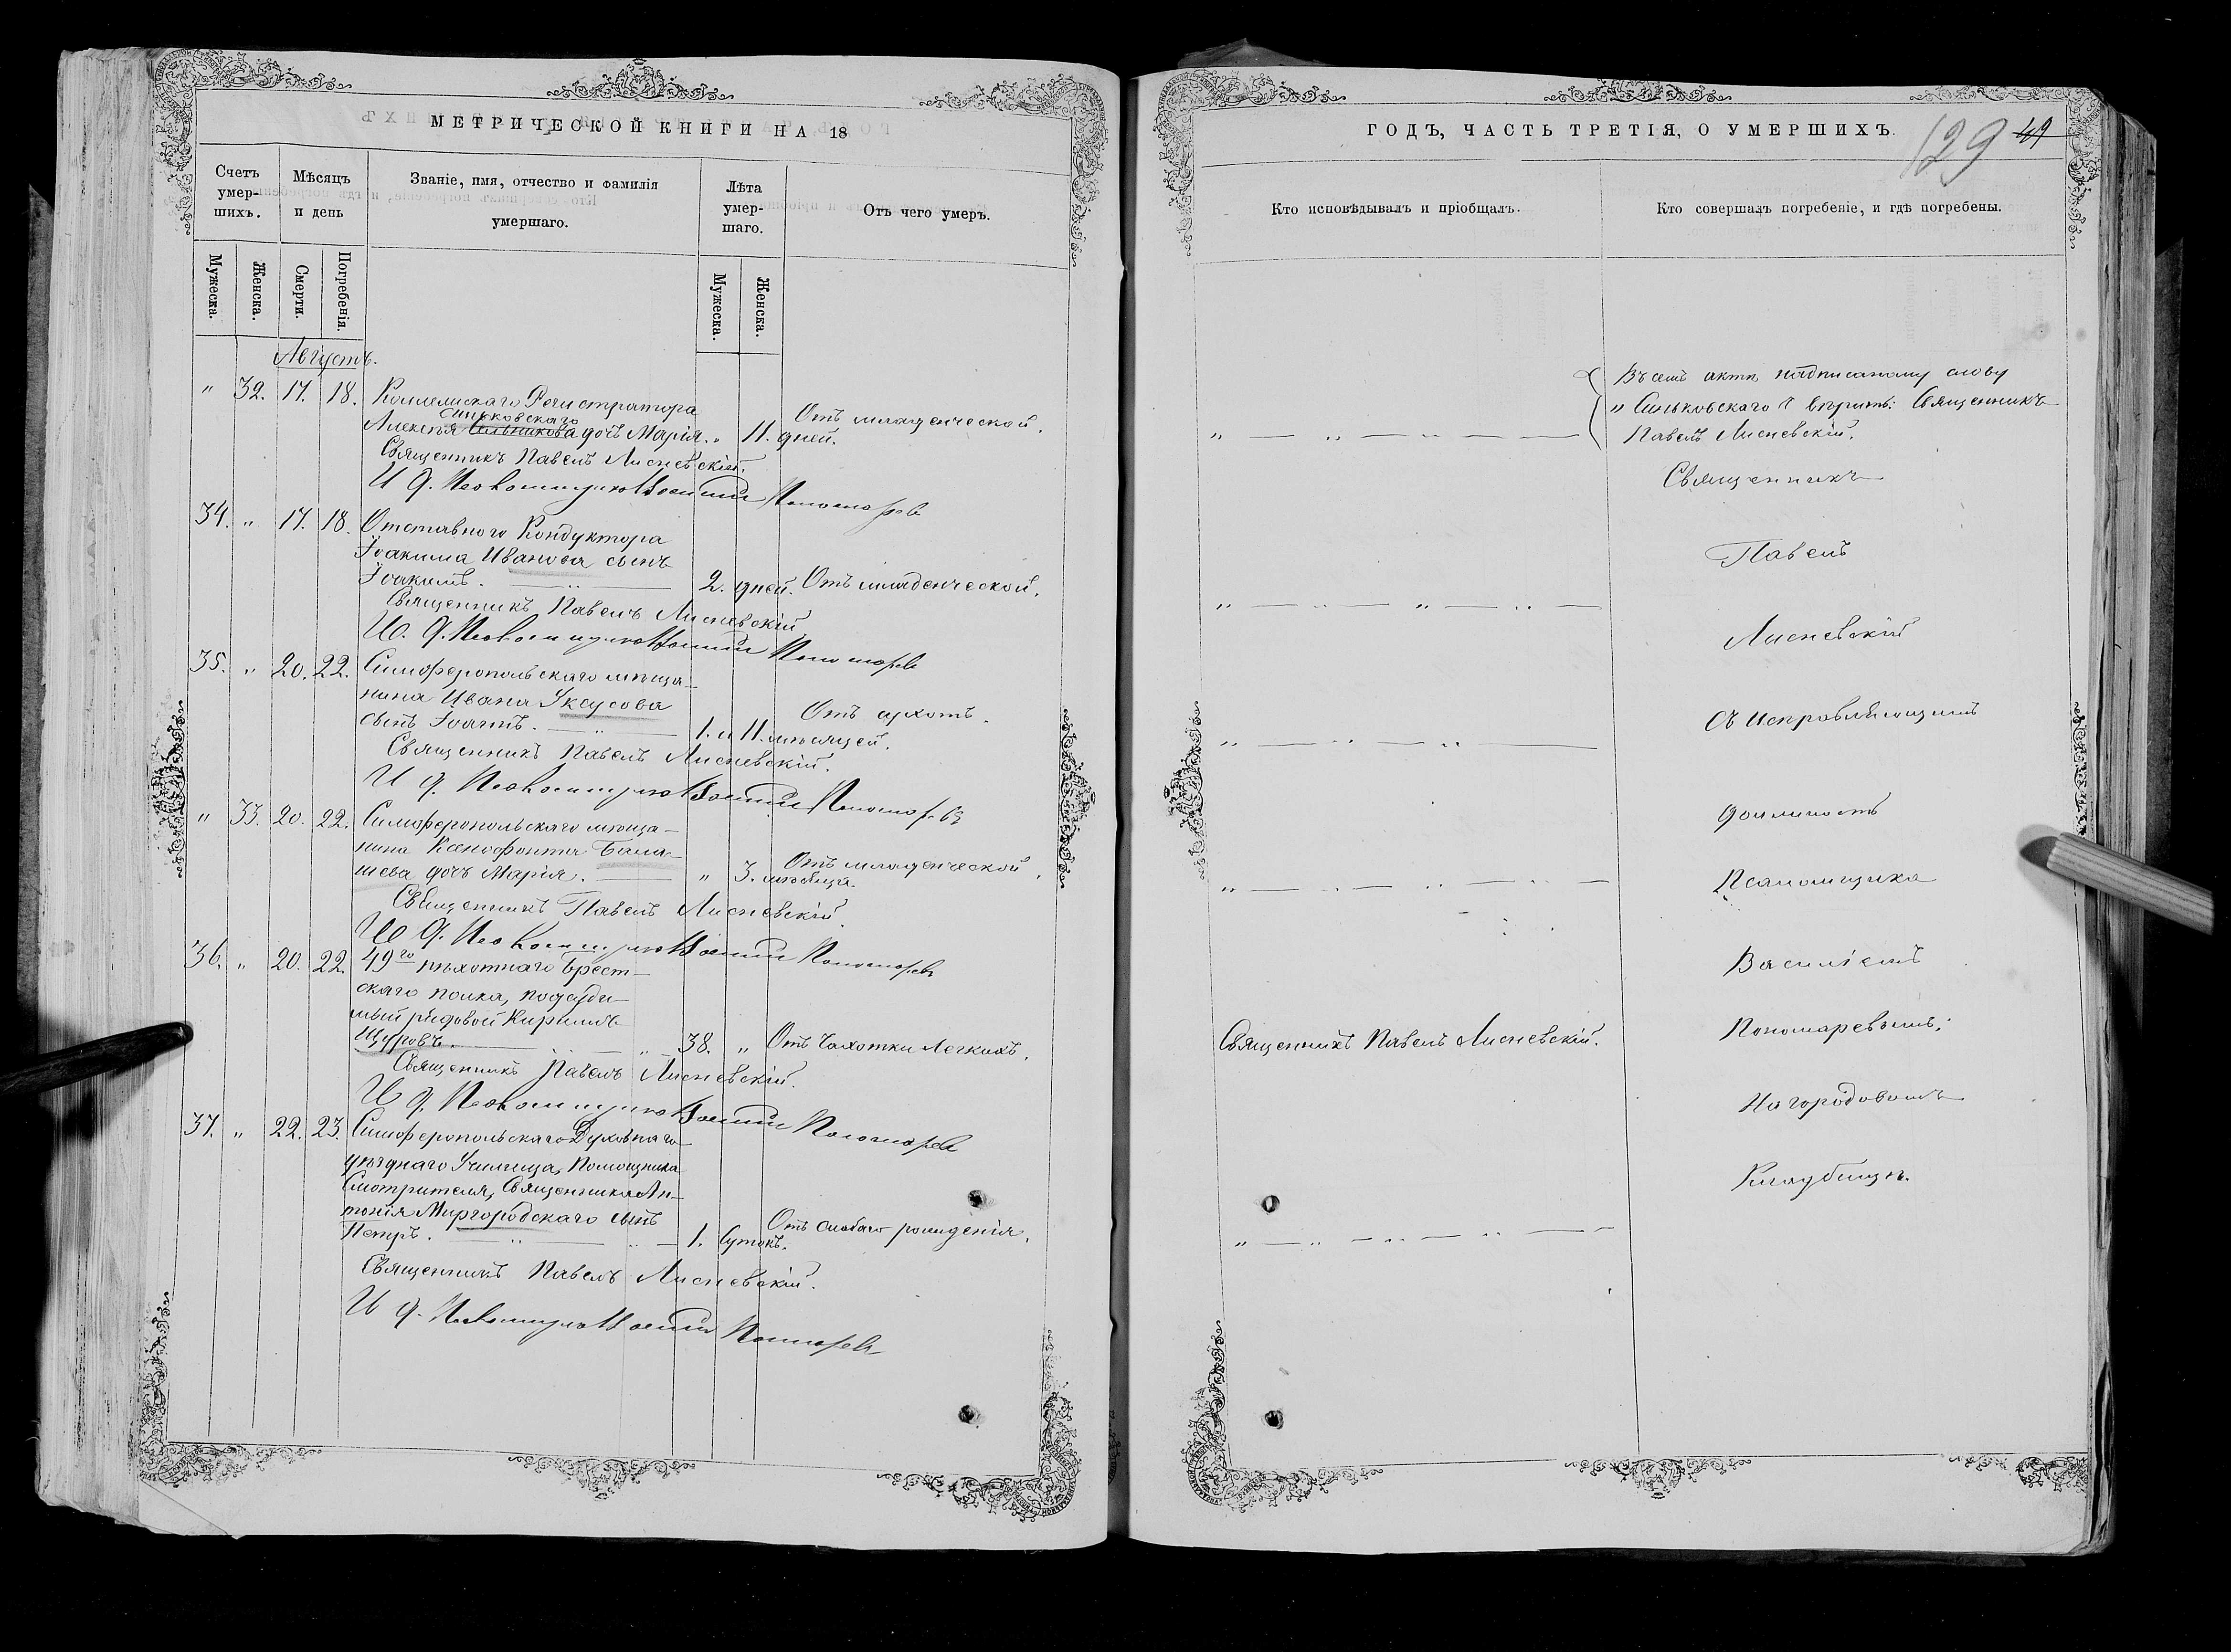 МЕТРИЧЕСКОЙ КНИГИ НА 18
Счетъ умер-шихъ.
Мѣсяцъ и день
Званіе, имя, отчество и фамилія умершаго.
Лѣта умер-шаго.
Отъ чего умеръ.
Мужеска.
Женска.
Смерти.
Погребенія.
Мужеска.
Женска.
Августъ.
" 32. 17. 18. Коллежскаго Регистратора
Синьковскаго
Алексѣя Сальникова дочь Марія. " 11. дней. Отъ младенческой.
Священникъ Павелъ Лисневскій.
И д. Псаломщика Василій Пономаревъ
34. " 17. 18. Отставного Кондуктора
Іоакима Иванова сынъ
Іоакимъ. 2. дней. Отъ младенческой.
Священникъ Павелъ Лисневскій
И. д. Псаломщика Василій Пономаревъ
35. " 20. 22. Симферопольскаго мѣща-
нина Ивана Уксусова
сынъ Іоаннъ. 1. и 11. мѣсяцей. Отъ сухотъ.
Священникъ Павелъ Лисневскій.
И д. Псаломщика Василій Пономаревъ
" 33. 20. 22. Симферопольскаго мѣща-
нина Ксенофонта Бала-
шева дочь Марія. " 3. мѣсяца. Отъ младенческой.
Священникъ Павелъ Лисневскій
И д. Псаломщика Василій Пономаревъ
36. " 20. 22. 49го пѣхотнаго Брест-
скаго полка,
рядовой Кириллъ
Щуровъ. 38. " Отъ Чахотки Легкихъ.
Священникъ Павелъ Лисневскій.
И д. Псаломщика Василій Пономаревъ
37. " 22. 23. Симферопольскаго Духовнаго
уѣзднаго Училища, Помощника
Смотрителя, Священника Ан-
тонія Миргородскаго сынъ
Петръ. 1. Сутокъ. Отъ слабаго рожденія.
Священникъ Павелъ Лисневскій.
И д. Псаломщика Василій Пономаревъ
ГОДЪ, ЧАСТЬ ТРЕТІЯ, О УМЕРШИХЪ.
129 49
Кто исповѣдывалъ и пріобщалъ.
Кто совершалъ погребеніе, и гдѣ погребены.
Въ семъ актѣ надписаному слову
"Синьковскаго" вѣрить: Священникъ
Павелъ Лисневскій.
Священникъ
Павелъ
Лисневскій
Съ Исправляющимъ
должность
Псаломщика
Василіемъ
Священникъ Павелъ Лисневскій.
Пономаревымъ;
На городовомъ
Кладбищѣ.